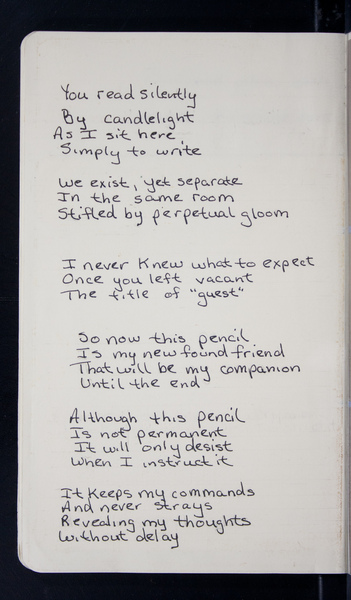 You read silently
By candlelight
As I sit here
Simply to write
We exist, yet separate
In the same room
Stifled by perpetual gloom
I never knew what to expect
Once you left vacant
The title of "guest"
So now this pencil
Is my new found friend
That will be my companion
Until the end
Although this pencil
Is not permanent
It will only desist
When I instruct it
It keeps my commands
And never strays
Revealing my thoughts
Without delay